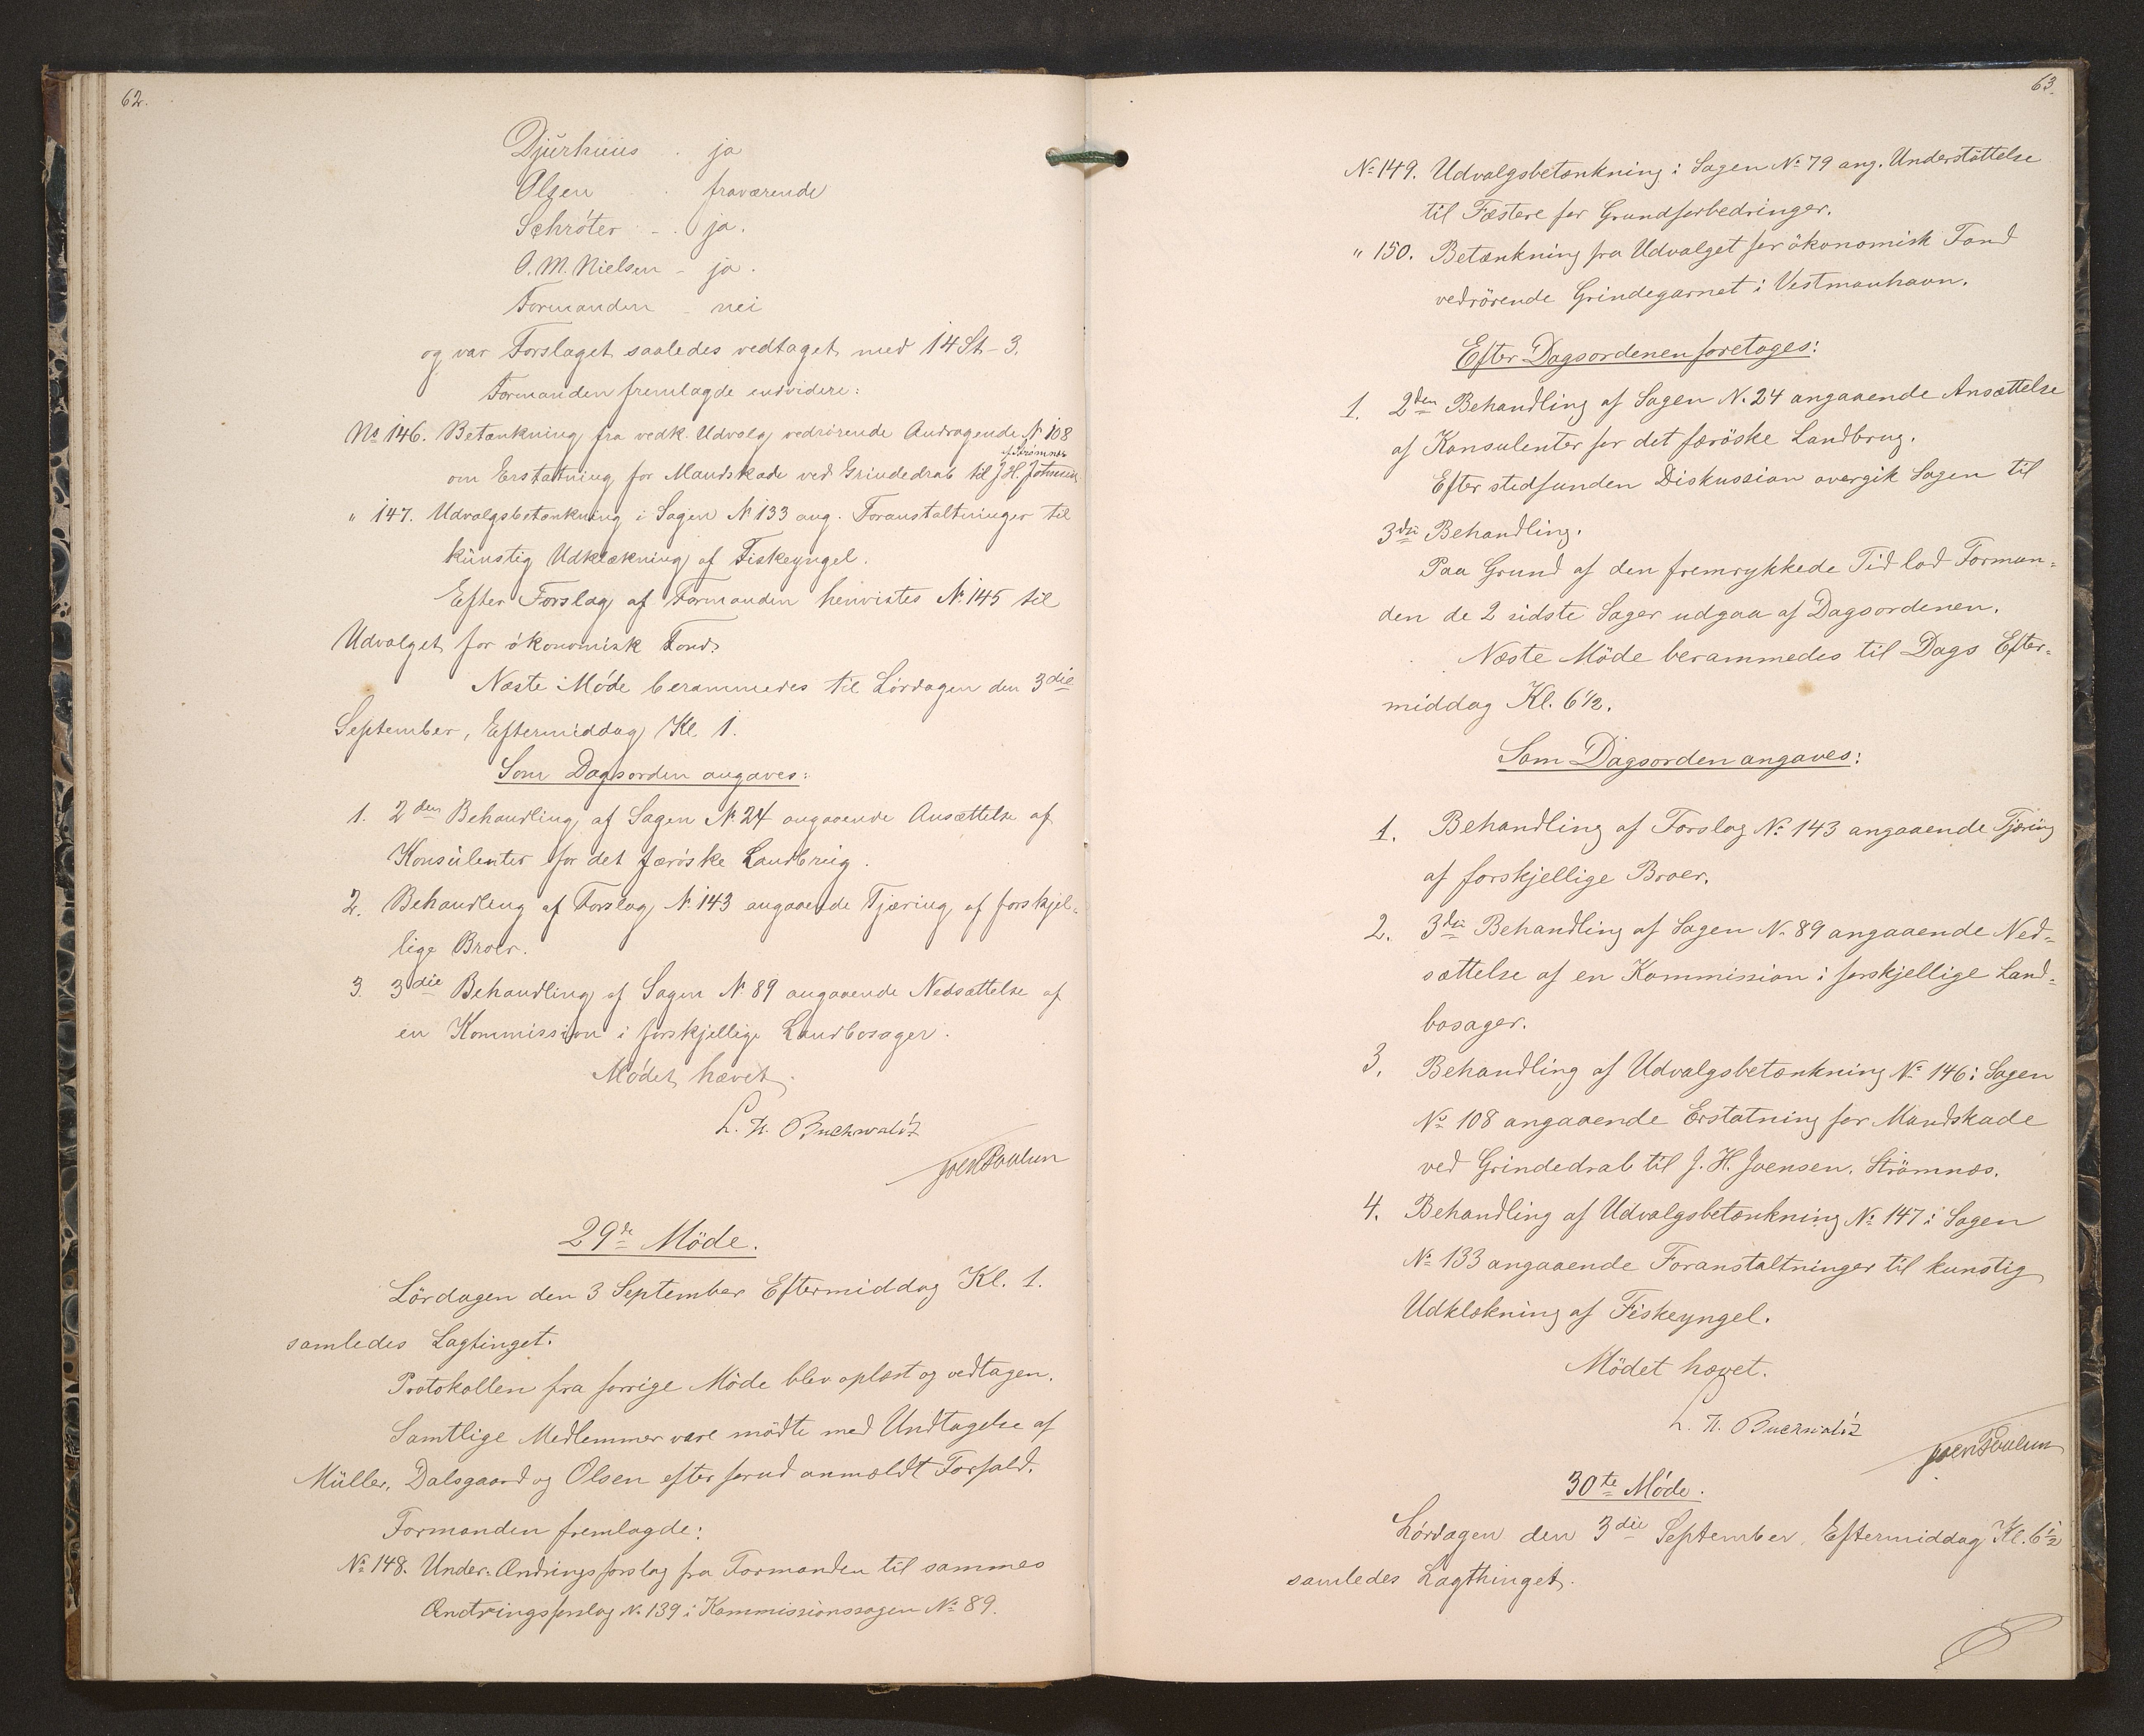 62.
Djurhuus . ja
Olsen . . fraværende
Schröter - . ja.
O. M. Nielsen - ja.
Formanden - nei
og var Forslaget saaledes vedtaget med 14 St - 3.
Formanden fremlagde endvidere:
No 146. Betænkning fra vedk. Udvalg vedrørende Andragende N 108
om Erstatning for Mandskade ved Grindedrab til J. H. Joensen
Strømnæs
" 147. Udvalgsbetænkning i Sagen N 133 ang. Foranstaltninger til
künstig Udklækning af Fiskeyngel.
Efter Forslag af Formanden henvistes N. 145 til
Udvalget for økonomisk Fond.
Næste Møde berammedes til Lørdagen den 3die
September, Eftermiddag Kl 1.
Som Dagsorden angaves:
1. 2den Behandling af Sagen N. 24 angaaende Ansættelse af
Konsülenter for det færøske Landbrüg.
2. Behandling af Forslag N. 143 angaaende Tjæring af forskjel-
lige Broer.
3. 3die Behandling af Sagen N. 89 angaaende Nedsættelse af
en Kommission i forskjellige Landbosager.
Mødet hævet.
L. H. Buchwaldt
Joen Poulsen
29de Möde.
Lördagen den 3 September Eftermiddag Kl. 1.
samledes Lagtinget.
Protokollen fra forrige Möde blev oplæst og vedtagen.
Samtlige Medlemmer vare mödte med Undtagelse af
Müller, Dalsgaard og Olsen efter forud anmeldt Forfald.
Formanden fremlagde:
No 148. Under-Ændringsforslag fra Formanden til sammes
Ændringsforslag N. 139 i Kommissionssagen No 89.
63.
No 149. Udvalgsbetænkning i Sagen No 79 ang. Understöttelse
til Fæstere for Grundforbedringer.
" 150. Betænkning fra Udvalget for ökonomisk Fond
vedrörende Grindegarnet i Vestmanhavn.
Efter Dagsordenen foretoges:
1. 2den Behandling af Sagen N. 24 angaaende Ansættelse
af Konsulenter for det færöske Landbrug.
Efter stedfunden Diskussion overgik Sagen til
3die Behandling.
Paa Grund af den fremrykkede Tid lod Forman-
den de 2 sidste Sager udgaa af Dagsordenen.
Næste Möde berammedes til Dags Efter-
middag Kl. 6 1/2.
Som Dagsorden angaves:
1. Behandling af Forslag No 143 angaaende Tjæring
af forskjellige Broer.
2. 3die Behandling af Sagen N. 89 angaaende Ned-
sættelse af en Kommission i forskjellige Land-
bosager.
3. Behandling af Udvalgsbetænkning No 146 i Sagen
No 108 angaaende Erstatning for Mandskade
ved Grindedrab til J. H. Joensen, Strömnæs.
4. Behandling af Udvalgsbetænkning No 147 i Sagen
No 133 angaaende Foranstaltninger til kunstig
Udklækning af Fiskeyngel.
Mödet hævet.
L. H. Buchwaldt
Joen Poulsen
30te Møde.
Lørdagen den 3die September, Eftermiddag Kl. 6 1/2
samledes Lagthinget.